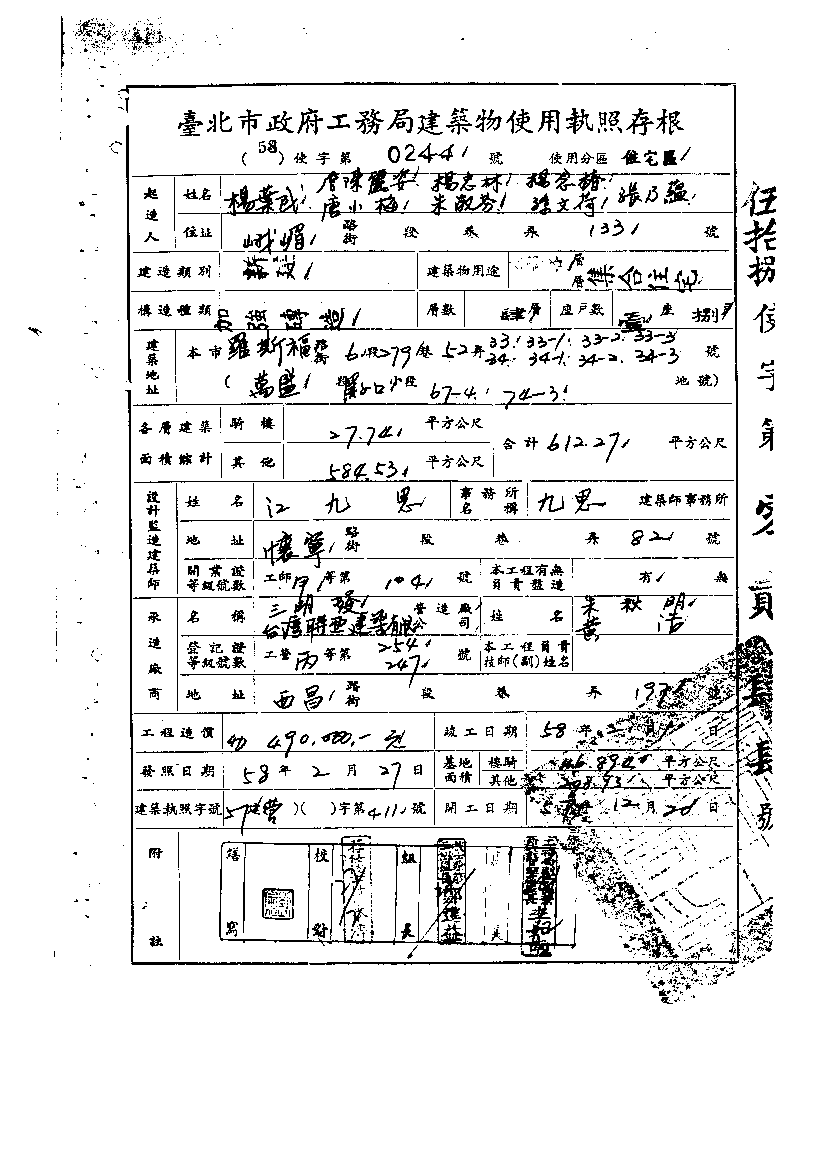 臺北市政府工務局建築物使用執照存根
(58)使字第 0244 號 使用分區 住宅區
起造人 姓名 楊葉民 唐陳麗安 楊忠林
唐小梅 朱敬芬 孫文荷 張乃蘊
住址 峨嵋 路街 段 巷 弄 133 號
建造類別 新建 建築物用途 集合住宅
構造種類 加強磚造 層數 肆層 座戶數 壹座 捌戶
建築地址 本市 羅斯福路街 6段279巷52弄 33. 33-1. 33-2. 33-3 號
34. 34-1. 34-2. 34-3
(萬盛 段 小段 67-4. 74-3 地號)
各層建築面積總計 騎樓 27.74 平方公尺 合計 612.27 平方公尺
其他 584.53 平方公尺
設計監造建築師 姓名 江九思 事務所名稱 九思 建築師事務所
地址 懷寧 路街 段 巷 弄 82 號
開業證等級號數 工師甲等第 104 號 本工程有無負責監造 有 無
承造廠商 名稱 三朋發 營造廠 姓名 朱秋明
台灣聯亞建築有限公司 黃浩
登記證等級號數 工營丙等第 254 247 號 本工程負責技師(副)姓名
地址 西昌 路街 段 巷 弄 197 號
工程造價 490,000.- 元 竣工日期 58年 月 日
發照日期 58年2月27日 基地面積 樓騎 平方公尺
其他 平方公尺
建築執照字號 57建營( )字第411號 開工日期 5 年12月20日
附註 繕寫 校對 組長
伍拾捌使字第 號